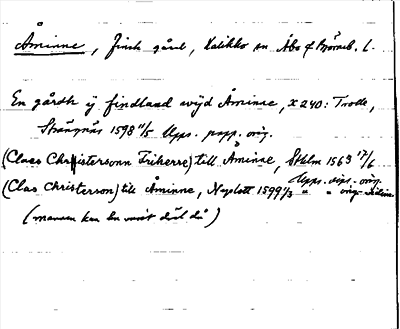 Åminne, finsk gård, Halikko sn Åbo o Björneb. l.
En gårdh ij findland widh Åminne, X 240: Trolle,
Strängnäs 1598 11/5 Upps. papp. orig.
(Claas Christersonn Friherre) till Åminne, Sthlm 1563 17/6
Upps. dipl. orig.
(Clas Christerson) till Åminne, Nyslott 1599 1/3 " " orig.
(mannen kan ha varit död då)